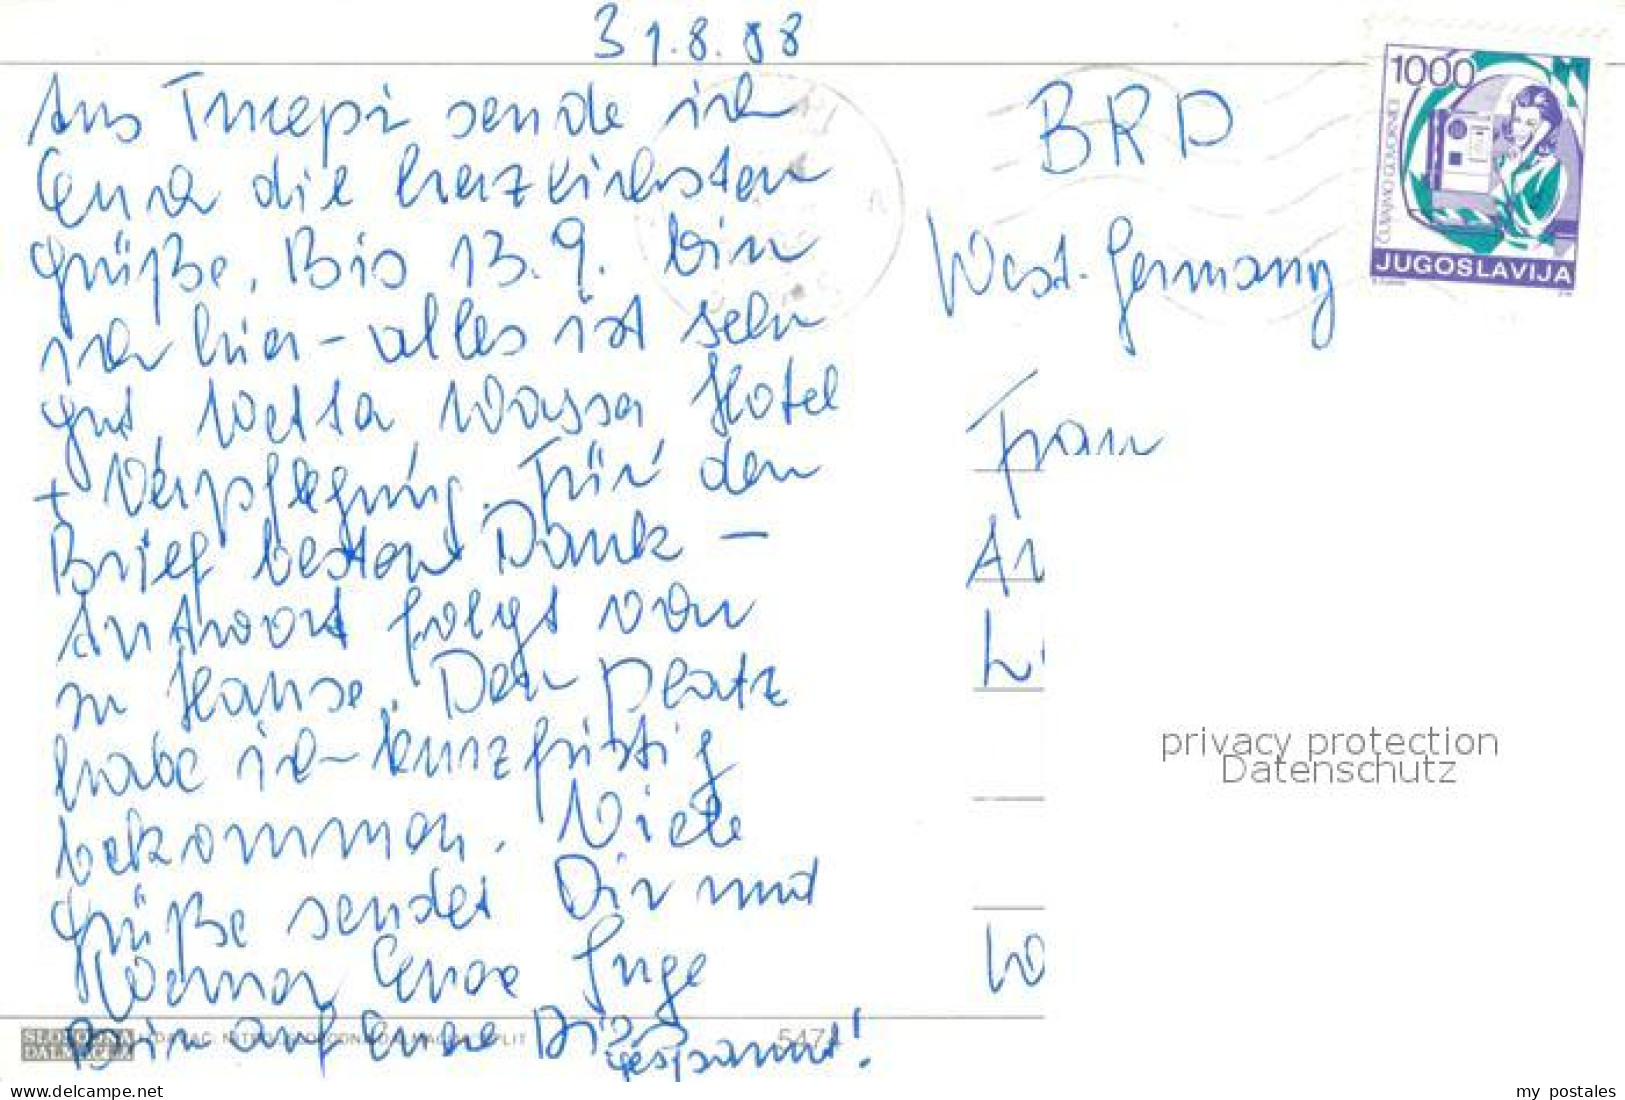 31.8.88
Aus Tucepi sende ich
Euch die herzlichsten
Grüße. Bis 13.9. bin
ich hier – alles ist sehr
gut, Wetter Wasser Hotel
+ Verpflegung. Für den
Brief besten Dank –
Antwort folgt von
zu Hause. Den Platz
habe ich kurzfristig
bekommen. Viele
Grüße sendet Dir und
Euere Inge
Bin auf Euere
gespannt!
BRD
West-Germany
Frau
1000
ČUVAJMO GOVORNICE
JUGOSLAVIJA
privacy protection
Datenschutz
SLOBODNA
DALMACIJA
SPLIT
5474
my postales